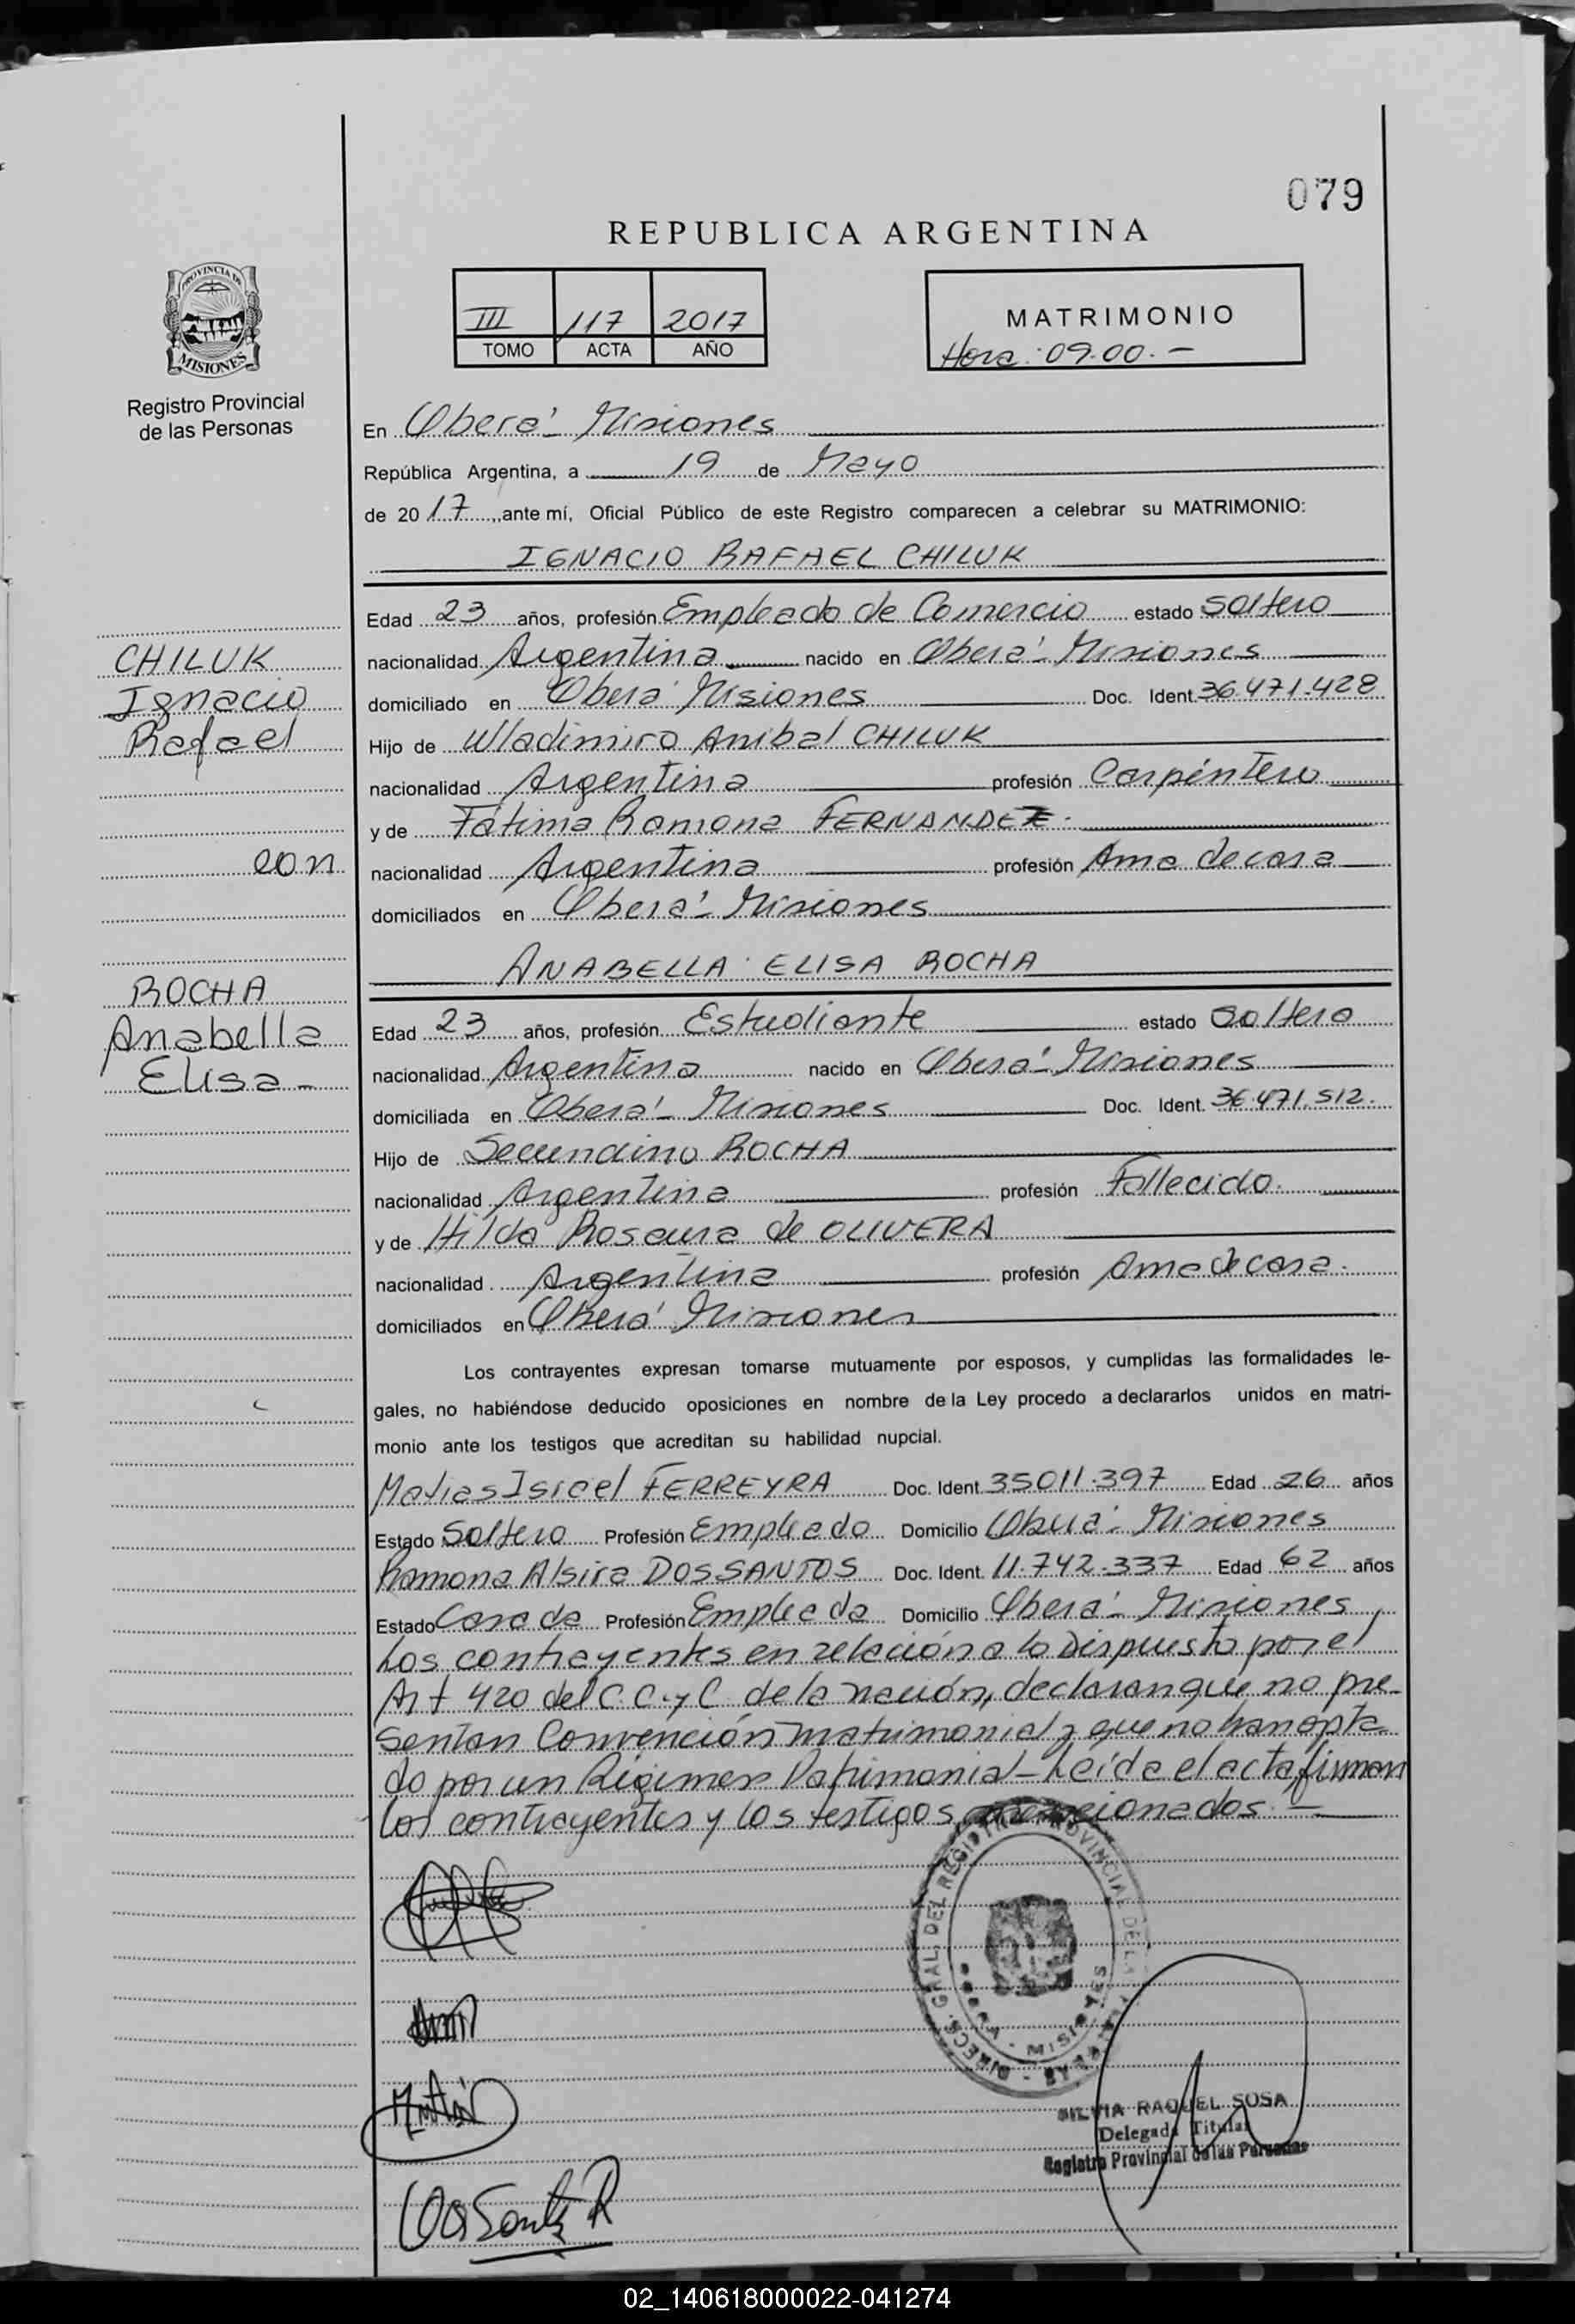 079
REPUBLICA ARGENTINA
PROVINCIA DE
MISIONES
Registro Provincial
de las Personas
III 117 2017
TOMO ACTA AÑO
MATRIMONIO
Hora: 09.00.-
En Oberá - Misiones
República Argentina, a 19 de Mayo
de 2017, ante mí, Oficial Público de este Registro comparecen a celebrar su MATRIMONIO:
IGNACIO RAFAEL CHILUK
CHILUK
Ignacio
Rafael
con
ROCHA
Anabella
Elisa -
Edad 23 años, profesión Empleado de Comercio estado Soltero
nacionalidad Argentina nacido en Oberá - Misiones
domiciliado en Oberá Misiones Doc. Ident. 36.471.428
Hijo de Wladimiro Anibal CHILUK
nacionalidad Argentina profesión Carpintero
y de Fátima Ramona FERNANDEZ.
nacionalidad Argentina profesión Ama de casa
domiciliados en Oberá - Misiones
ANABELLA ELISA ROCHA
Edad 23 años, profesión Estudiante estado Soltera
nacionalidad Argentina nacido en Oberá - Misiones
domiciliada en Oberá - Misiones Doc. Ident. 36.471.512.
Hijo de Secundino ROCHA
nacionalidad Argentina profesión Fallecido.
y de Hilda Rosaura de OLIVERA
nacionalidad Argentina profesión Ama de casa.
domiciliados en Oberá Misiones
Los contrayentes expresan tomarse mutuamente por esposos, y cumplidas las formalidades le-
gales, no habiéndose deducido oposiciones en nombre de la Ley procedo a declararlos unidos en matri-
monio ante los testigos que acreditan su habilidad nupcial.
Matias Israel FERREYRA Doc. Ident 35011.397 Edad 26 años
Estado Soltero Profesión Empleado Domicilio Oberá - Misiones
Ramona Alsira DOS SANTOS Doc. Ident. 11.742.337 Edad 62 años
Estado Casada Profesión Empleada Domicilio Oberá - Misiones
Los contrayentes en relación a lo Dispuesto por el
Art 420 del C.C. y C. de la nación, declaran que no pre-
sentan Convención matrimonial y que no han opta
do por un Régimen Patrimonial - Leída el acta firman
los contrayentes y los testigos mencionados. -
DIRECC. GRAL. DEL REGISTRO PROVINCIAL DE LAS PERSONAS
MISIONES
Dos Santos R
SILVIA RAQUEL SOSA
Delegada Titular
Registro Provincial de las Personas
02_140618000022-041274